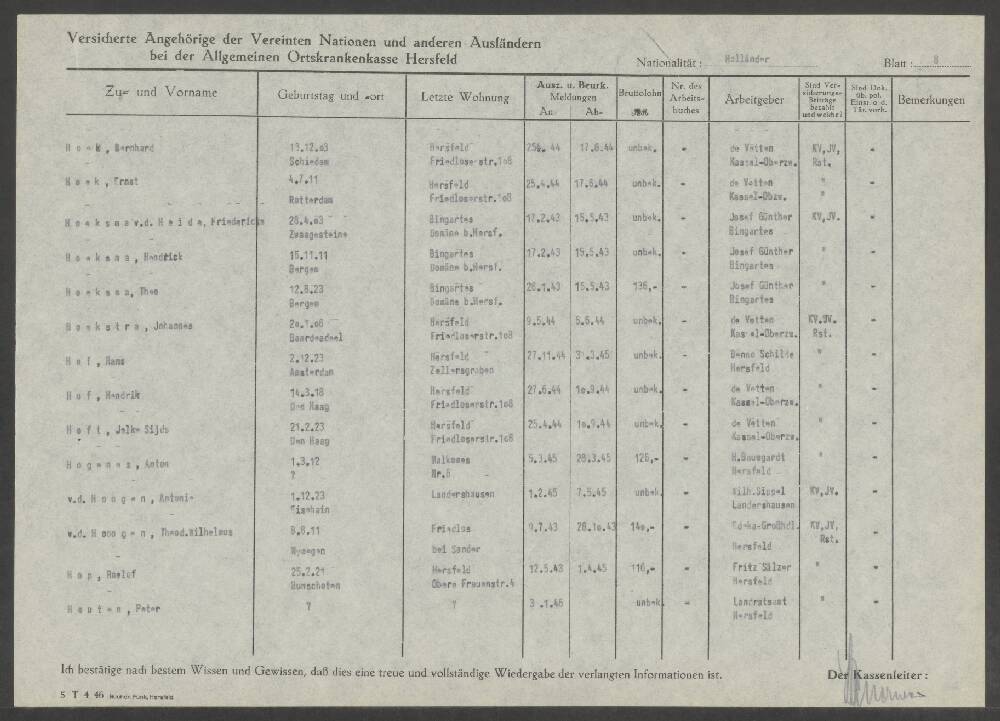 Versicherte Angehörige der Vereinten Nationen und anderen Ausländern
bei der Allgemeinen Ortskrankenkasse Hersfeld
Nationalität: Holländer Blatt: 8
Zu- und Vorname Geburtstag und -ort Letzte Wohnung Ausz. u. Beurk. Meldungen An- Ab- Bruttolohn Nr. des Arbeits- buches Arbeitgeber Sind Ver- sicherungs- Beiträge bezahlt und welche? Sind Dok. üb. pol. Einst. o. d. Tät. vorh. Bemerkungen
Hoek, Bernhard 13.12.03 Hersfeld 25.4.44 17.6.44 unbek. - de Vetten KV,JV, -
Schiedam Friedloserstr.1o8 Kassel-Oberzw. Rst.
Hoek, Ernst 4.7.11 Hersfeld 25.4.44 17.6.44 unbek. - de Vetten " -
Rotterdam Friedloserstr.1o8 Kassel-Obzw.
Hoeksma v.d. Heide, Friedericke 28.4.03 Bingartes 17.2.43 15.5.43 unbek. - Josef Günther KV,JV. -
Zwaagesteine Domäne b.Hersf. Bingartes
Hoeksma, Hendrick 15.11.11 Bingartes 17.2.43 15.5.43 unbek. - Josef Günther " -
Bergen Domäne b.Hersf. Bingartes
Hoeksma, Theo 12.8.23 Bingartes 28.1.43 15.5.43 136,- - Josef Günther " -
Bergen Domäne b.Hersf. Bingartes
Hoekstra, Johannes 2o.1.o6 Hersfeld 9.5.44 6.6.44 unbek. - de Vetten KV.JV. -
Baardeadeel Friedloserstr.1o8 Kassel-Oberzw. Rst.
Hof, Hans 2.12.23 Hersfeld 27.11.44 31.3.45 unbek. - Benno Schilde " -
Amsterdam Zellersgraben Hersfeld
Hof, Hendrik 14.3.18 Hersfeld 27.6.44 1o.9.44 unbek. - de Vetten " -
Den Haag Friedloserstr.1o8 Kassel-Oberzw.
Hoft, Jelke Sijds 21.2.23 Hersfeld 25.4.44 1o.9.44 unbek. - de Vetten " -
Den Haag Friedloserstr.1o8 Kassel-Oberzw.
Hogenes, Anton 1.3.12 Malkomes 5.3.45 28.3.45 126,- - H.Baumgardt " -
? Nr.6 Hersfeld
v.d. Hoogen, Antonie 1.12.23 Landershausen 1.2.45 7.5.45 unbek. - Wilh.Sippel KV,JV. -
Landershausen
v.d. Hooogen, Theod.Wilhelmus 8.8.11 Friedlos 9.7.43 28.1o.43 14o,- - Edeka-Großhdl. KV,JV, -
Nymegen bei Sander Hersfeld Rst.
Hop, Roelof 25.2.21 Hersfeld 12.5.43 1.4.45 116,- - Fritz Sälzer " -
Bunschoten Obere Frauenstr.4 Hersfeld
Houten, Peter ? ? 3.1.46 unbek. - Landratsamt " -
Hersfeld
Ich bestätige nach bestem Wissen und Gewissen, daß dies eine treue und vollständige Wiedergabe der verlangten Informationen ist. Der Kassenleiter:
S T 4 46